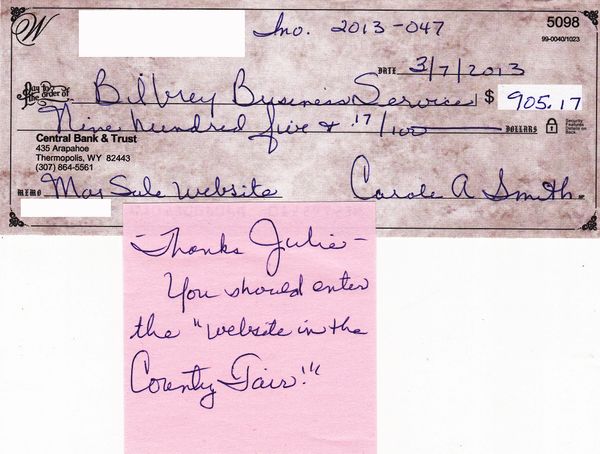 W
Ino. 2013-047
5098
99-0040/1023
DATE 3/7/2013
Pay to the order of Bilbrey Business Services $ 905.17
Nine hundred five & 17/100 DOLLARS Security Features Details on Back.
Central Bank & Trust
435 Arapahoe
Thermopolis, WY 82443
(307) 864-5561
MEMO Mar Sale website Carole A Smith
-Thanks Julie-
You should enter
the "website in the
County Fair!"